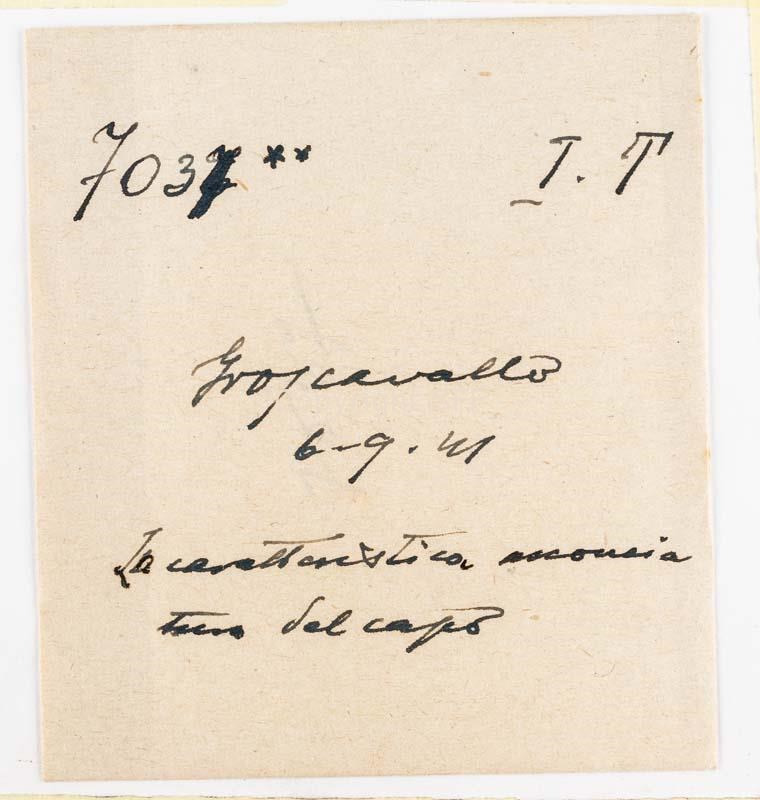 7037 **
I. T
Groscavallo
6-9.41
La caratteristica acconcia
tura del capo